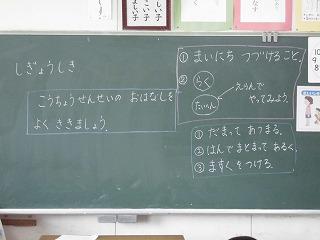 しぎょうしき
こうちょうせんせいの おはなしを
よく ききましょう。
① まいにち つづけること。
②
らく
たいへん
えらんで
やってみよう。
① だまって あつまる。
② はんで まとまって あるく。
③ ますくを つける。
10
9
8